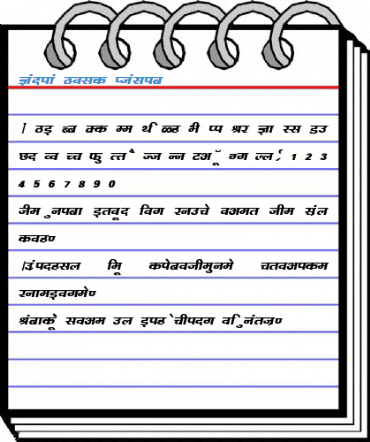 ज्ञंदपां ठवसक प्जंसपब
। ठइ ब्ब क्क म्म र्थ ळ्ह भी प्प श्रर ज्ञा स्स डउ
छद व्व च्च फु त्त ै ज्ज न्न टअ ॅ ग्ग ल्ल ् 1 2 3
4 5 6 7 8 9 0
जीम ुनपबा इतवूद विग रनउचे वअमत जीम संल
कवहण
।उंपदहसल मिू कपेबवजीमुनमे चतवअपकम
रनामइवगमेण
श्रंबाकूे सवअम उल इपह ेचीपदग वि ुनंतज्रण